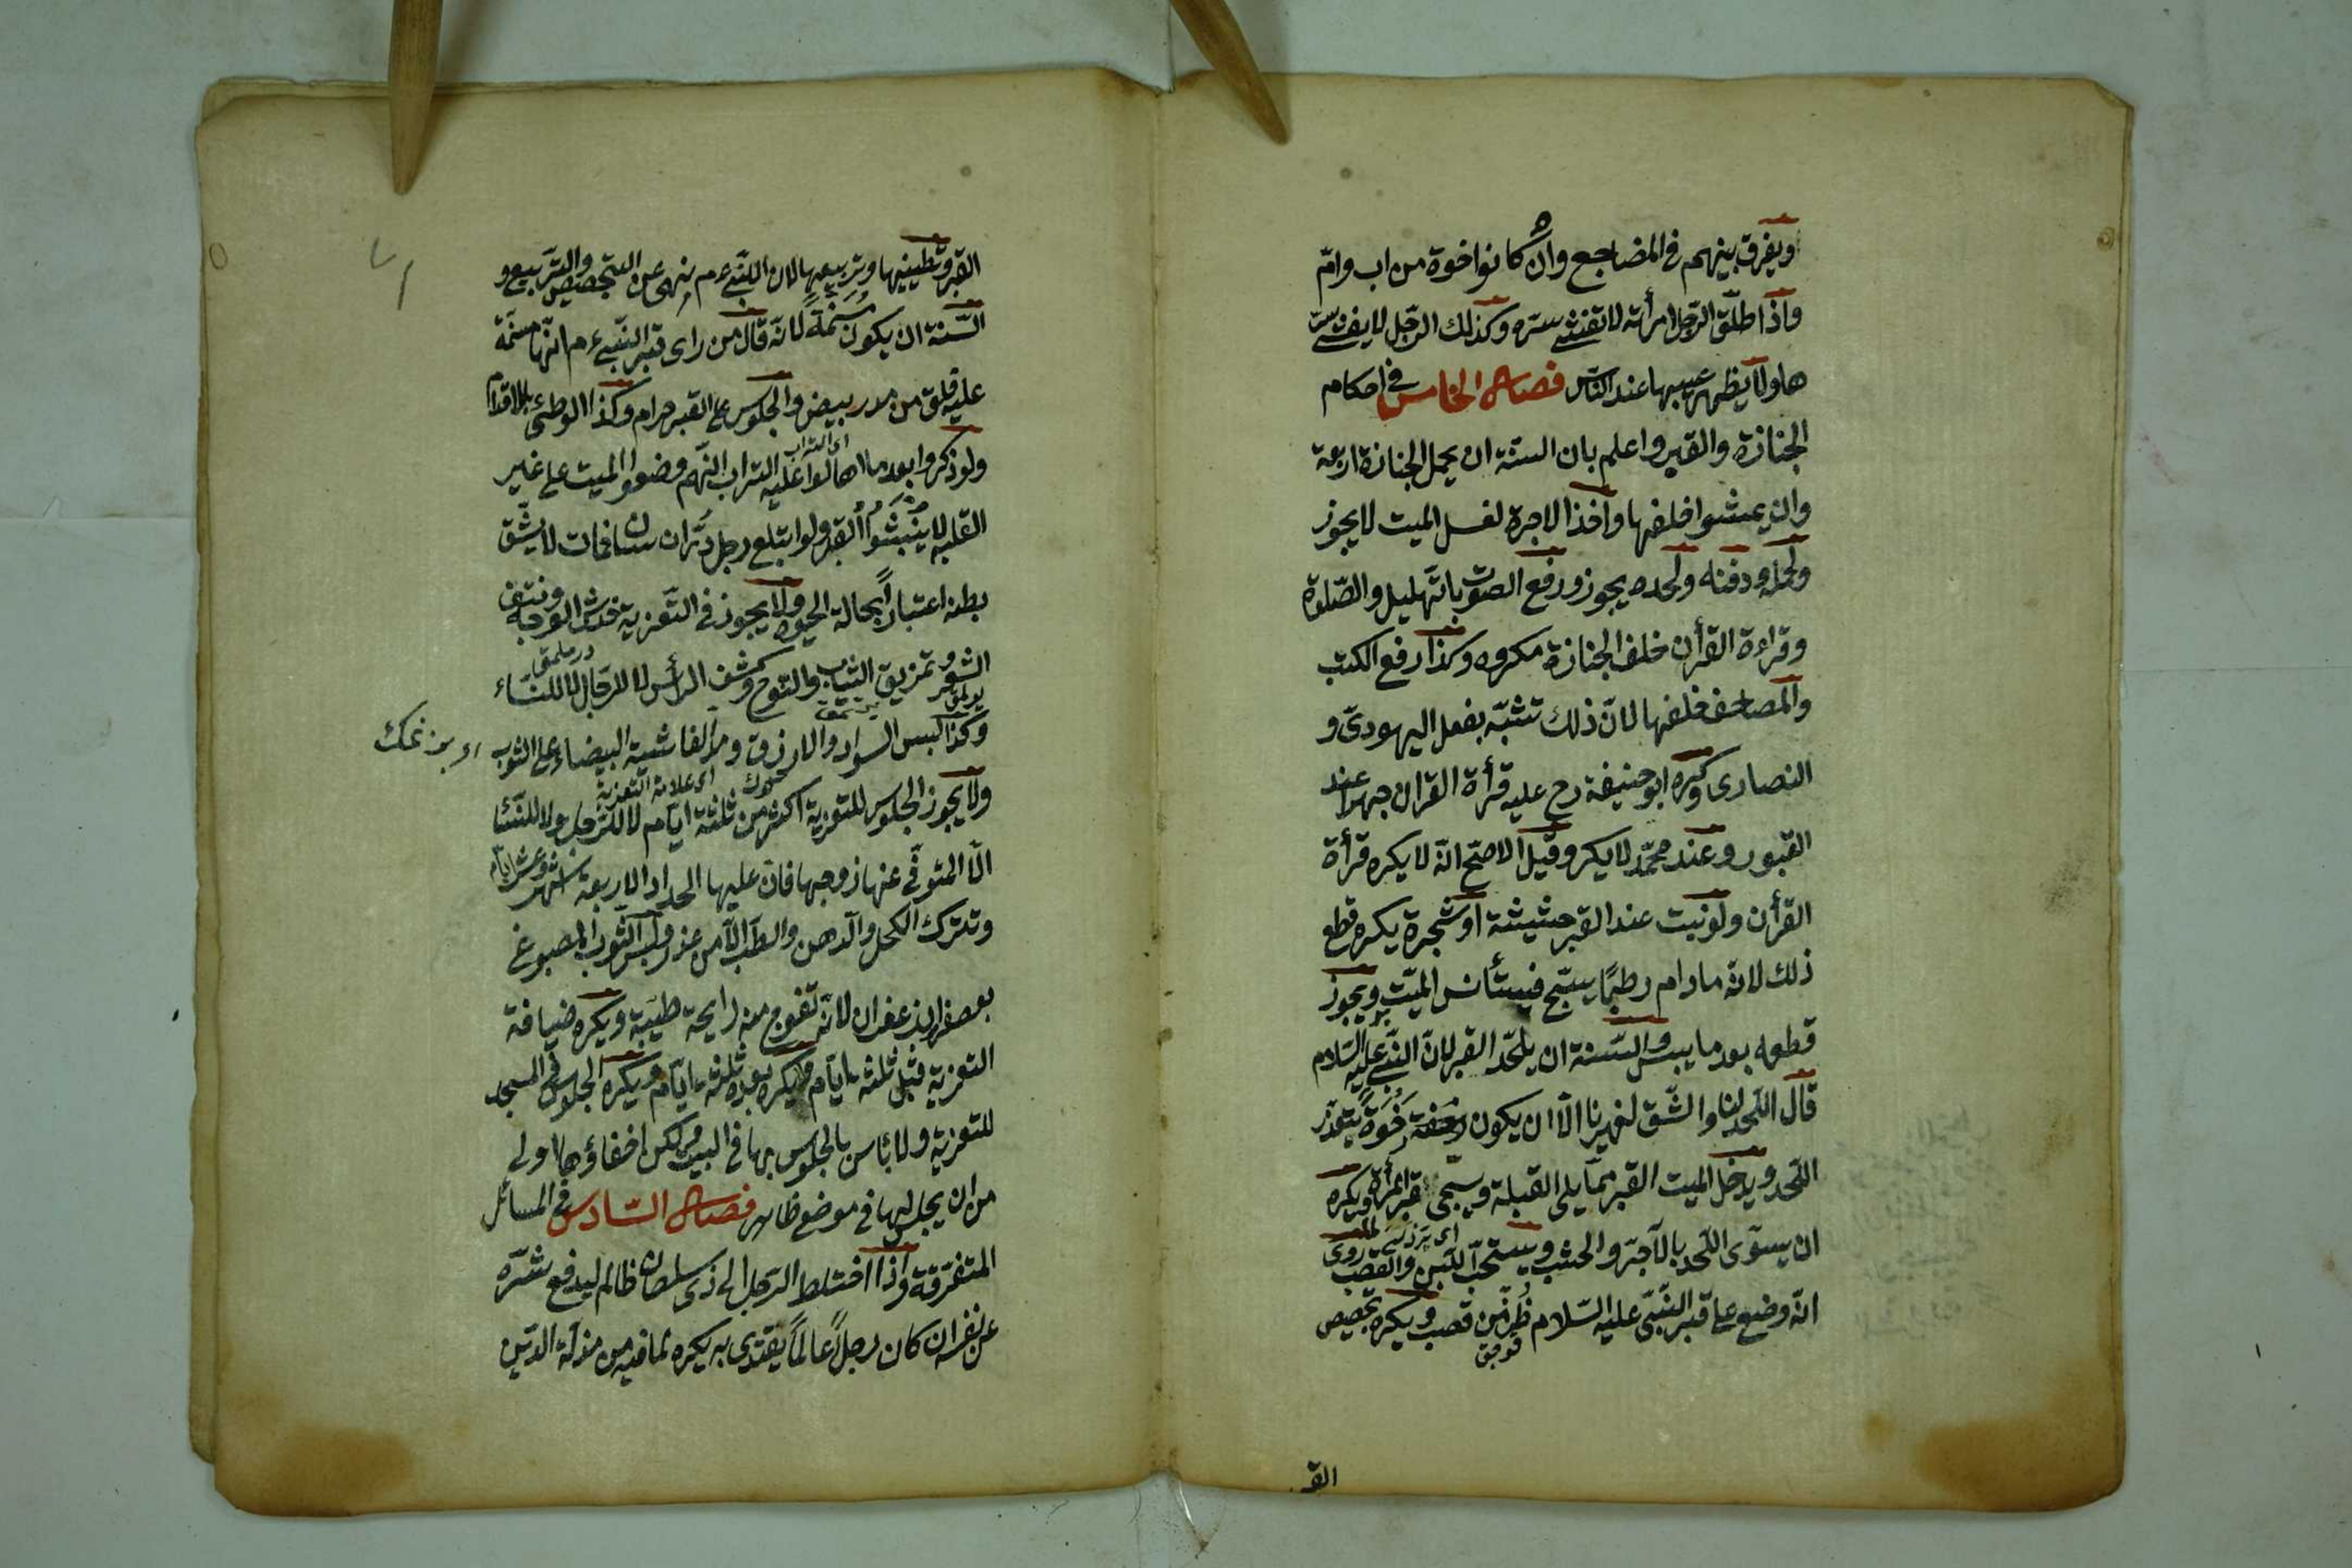 ويفرق بينهم فى المضاجع وان كانوا اخوة من اب وامّ
واذا طلّق الرّجل امرأته لا تفشى سره وكذلك الرّجل لا يفشى سرّ
ها ولا يظهر عيبها عند النّاس فصل الخامس فى احكام
الجنازة والقبر واعلم بان السنة ان يحمل الجنازة اربعة
وان يمشوا خلفها واخذ الاجرة لغسل الميت لا يجوز
ولحمله ودفنه ولحده يجوز ورفع الصّوت بالتّهليل والصّلوة
وقراءة القرأن خلف الجنازة مكروه وكذا رفع الكتب
والمصاحف خلفها لانّ ذلك تشبّه بفعل اليهودىّ و
النصارى وكره ابو حنيفة رح عليه قرأة القران جهرا عند
القبور وعند محمّد لا يكره وقيل الاصحّ انّه لا يكره قرأة
القرأن ولو نبت عند القبر حشيشة او شجرة يكره قطع
ذلك لانّه مادام رطبًا يسبّح فيستأنس الميّت ويجوز
قطعه بعد ما يبس والسّنة ان يلحّد القبر لانّ النّبى عليه السّلام
قال اللّحد لنا والشّق لغيرنا الّا ان يكون رخوة يتعذّر
اللّحد ويدخل الميت القبر ممّا يلى القبلة ويسجّى قبر المرأة ويكره
ان يسوّى اللّحد بالآجرّ والخشب ويستحبّ اللّبن والقصب روى
انّه وضع على قبر النّبىّ عليه السّلام طُنّ من قصب ويكره تجصيص
القـ
القبر وتطيينها وتربيعها لان النّبى ءم نهى عن التجصيص والتّربيع و
السّنة ان يكون مسنّمةً لانّه قال من راى قبر النّبى ءم انّها مسنّمة
عليه فلق من مدر بيض والجلوس على القبر حرام وكذا الوطئ بالاقدام
ولو ذكروا بعد ما اهالوا عليه التراب انّهم وضعوا الميت على غير
اى التراب
القبلة لا ينبشوا القبر ولو ابتلع رجل درّ انسان فمات لا يشّق
بطنه اعتبارًا بحالة الحيوة ولا يجوز فى التّعزية خدش الوجه ونتف
الشعر وتمزيق الثياب والنّوح وكشف الرأس لا للرّجال لا للنّساء
وكذا لبس السواد والازرق ومن الغاشية البيضاء على الثوب
ولا يجوز الجلوس للتعزية اكثر من ثلثة ايّام لا للرّجل ولا للنّساء
اى علامة التّعزية
الّا المتوفّى عنها زوجها فان عليها الحداد الاربعة اشهر وعشر ايّام
وتترك الكحل والدّهن والطّيب الّا من عذر ولبس الثّوب المصبوغ
بعصفر او زعفران لانّه تفوح منه رايحة طيّبة ويكره ضيافة
التعزية قبل ثلثة ايّام ويكره بعده ثلثة ايّام ويكره الجلوس فى المسجد
للتعزية ولا بأس بالجلوس بها فى البيت ولكن اخفاؤها اولى
من ان يجلس لها فى موضع ظاهر فصل السّادس فى المسائل
المتفرّقة واذا اختلط الرّجل الى ذى سلطان ظالم ليدفع شرّه
عن نفسه ان كان رجلاً عالمًا يقتدى به يكره لما فيه من مذلّة الدّين